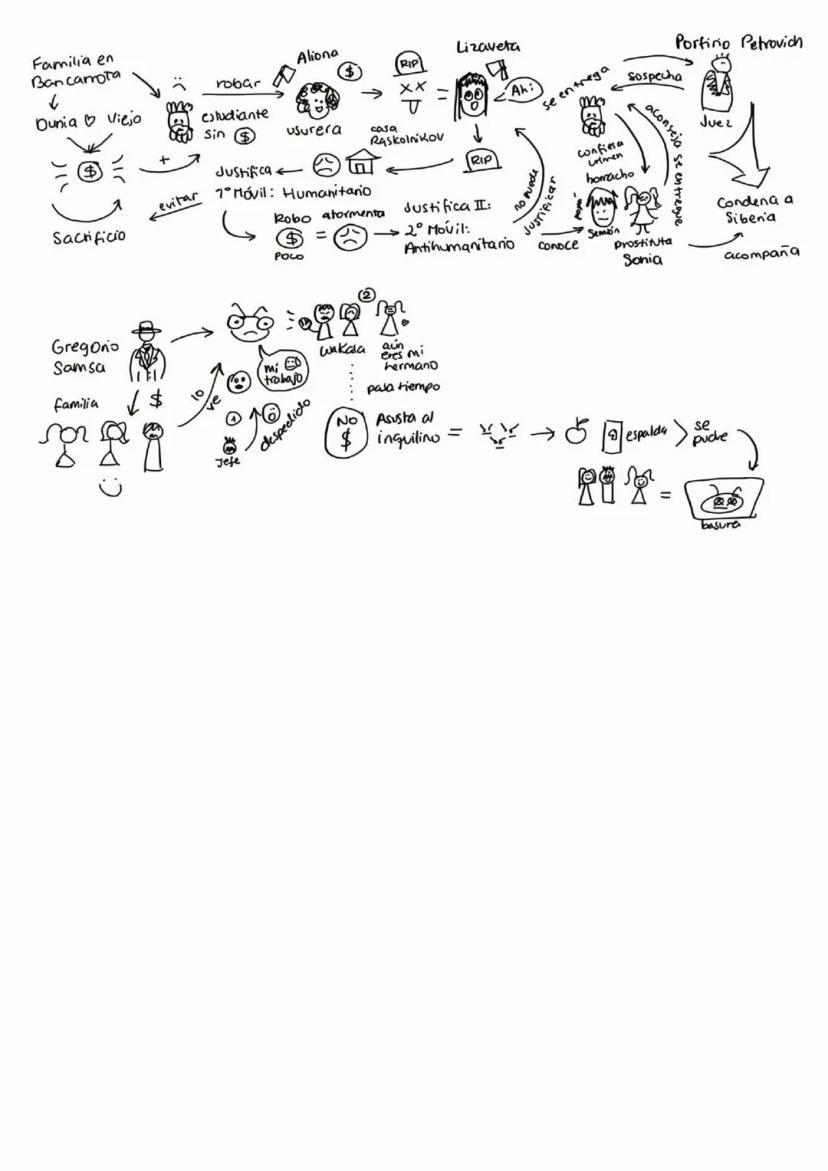 Familia en
Bancarrota
Dunia ♡ Viejo
$
Sacrificio
+
evitar
robar
estudiante
sin $
Aliona
$
usurera
RIP
X X
=
Lizaveta
Ah!
RIP
casa
Raskolnikov
Justifica
1º Móvil: Humanitario
Robo
$
poco
=
atormenta
Justifica II:
2º Móvil:
Antihumanitario
no puede
Justificar
conoce
se entrega
sospecha
Porfirio Petrovich
Juez
confiesa
crimen
borracho
papá
Semión
Prostituta
Sonia
aconseja se entregue
Condena a
Siberia
acompaña
Gregorio
Samsa
$
familia
lo
ve
mi
trabajo
1
Jefe
despedido
2
wakala
aún
eres mi
hermano
pasa tiempo
NO
$
Asusta al
inquilino =
espalda
se
pudre
=
basura